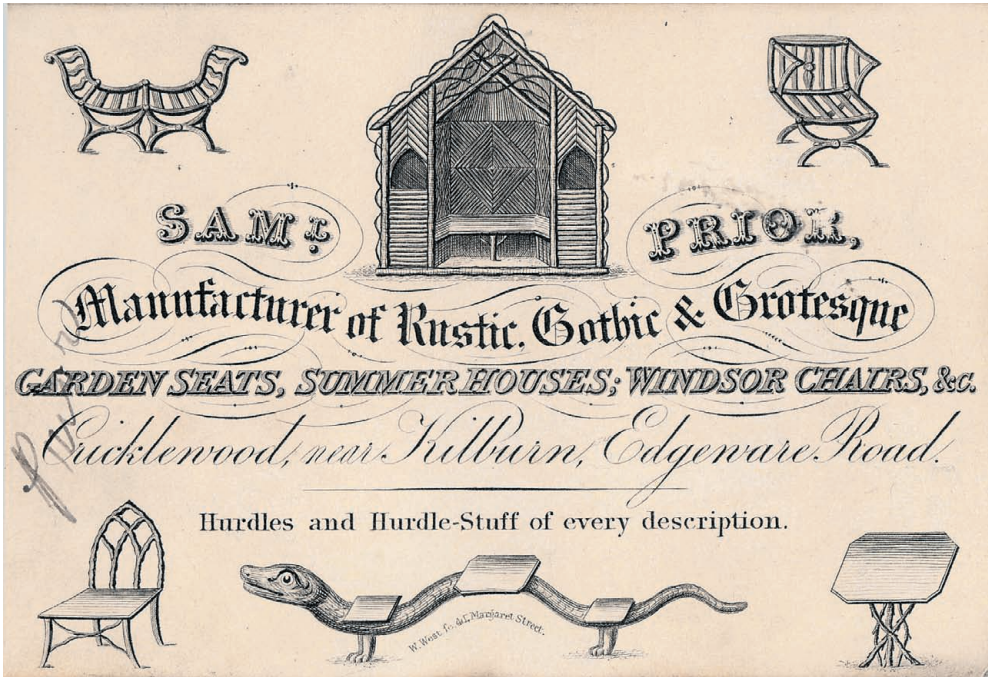 SAML. PRIOR,
Manufacturer of Rustic, Gothic & Grotesque
GARDEN SEATS, SUMMER HOUSES; WINDSOR CHAIRS, &c.
Cricklewood, near Kilburn, Edgeware Road.
Hurdles and Hurdle-Stuff of every description.
W. West, sc. Margaret Street.